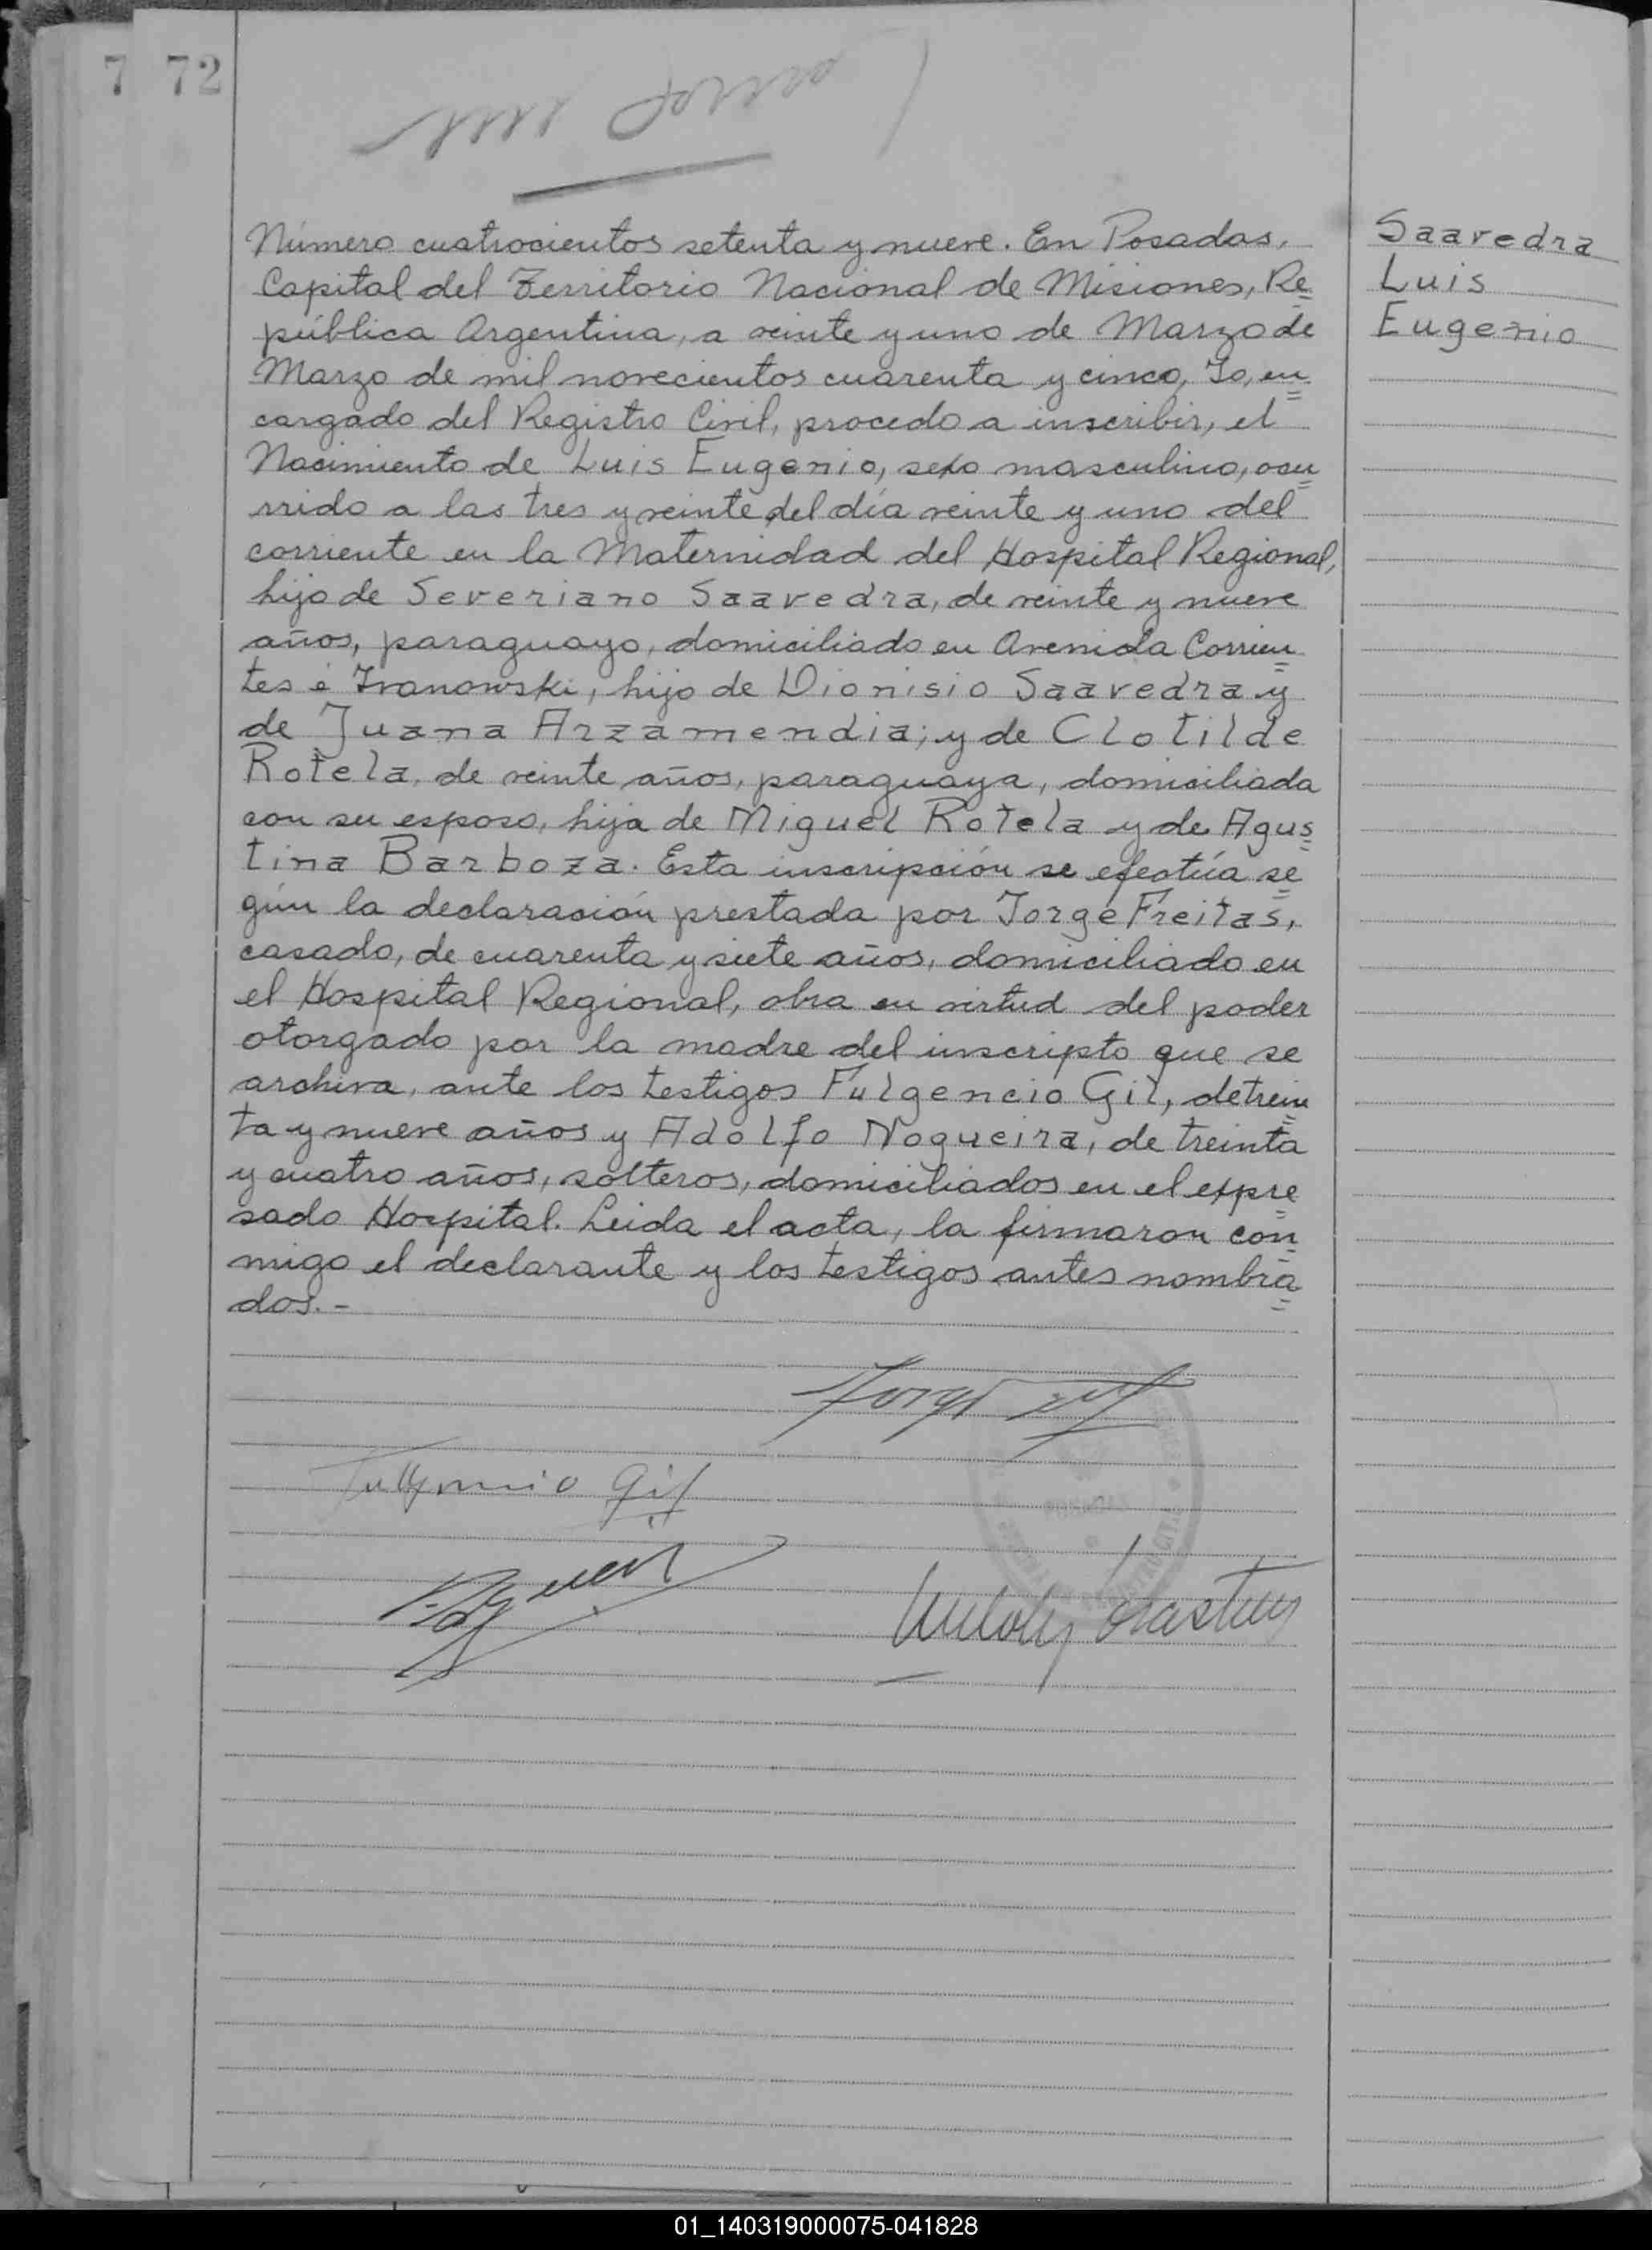 7 72
Número cuatrocientos setenta y nueve. En Posadas,
Capital del Territorio Nacional de Misiones, Re
pública Argentina, a veinte y uno de Marzo de
Marzo de mil novecientos cuarenta y cinco, Yo, en
cargado del Registro Civil, procedo a inscribir, el
Nacimiento de Luis Eugenio, sexo masculino, ocu
rrido a las tres y veinte del día veinte y uno del
corriente en la Maternidad del Hospital Regional,
hijo de Severiano Saavedra, de veinte y nueve
años, paraguayo, domiciliado en Avenida Corrien
tes é Ivanowski, hijo de Dionisio Saavedra y
de Juana Arzamendia; y de Clotilde
Rotela, de veinte años, paraguaya, domiciliada
con su esposo, hija de Miguel Rotela y de Agus
tina Barboza. Esta inscripción se efectúa se
gún la declaración prestada por Jorge Freitas,
casado, de cuarenta y siete años, domiciliado en
el Hospital Regional, obra en virtud del poder
otorgado por la madre del inscripto que se
archiva, ante los testigos Fulgencio Gil, de trein
ta y nueve años y Adolfo Nogueira, de treinta
y cuatro años, solteros, domiciliados en el expre
sado Hospital. Leida el acta, la firmaron con
migo el declarante y los testigos antes nombra
dos.-
Saavedra
Luis
Eugenio
Jorge
Fulgencio Gil
01_140319000075-041828